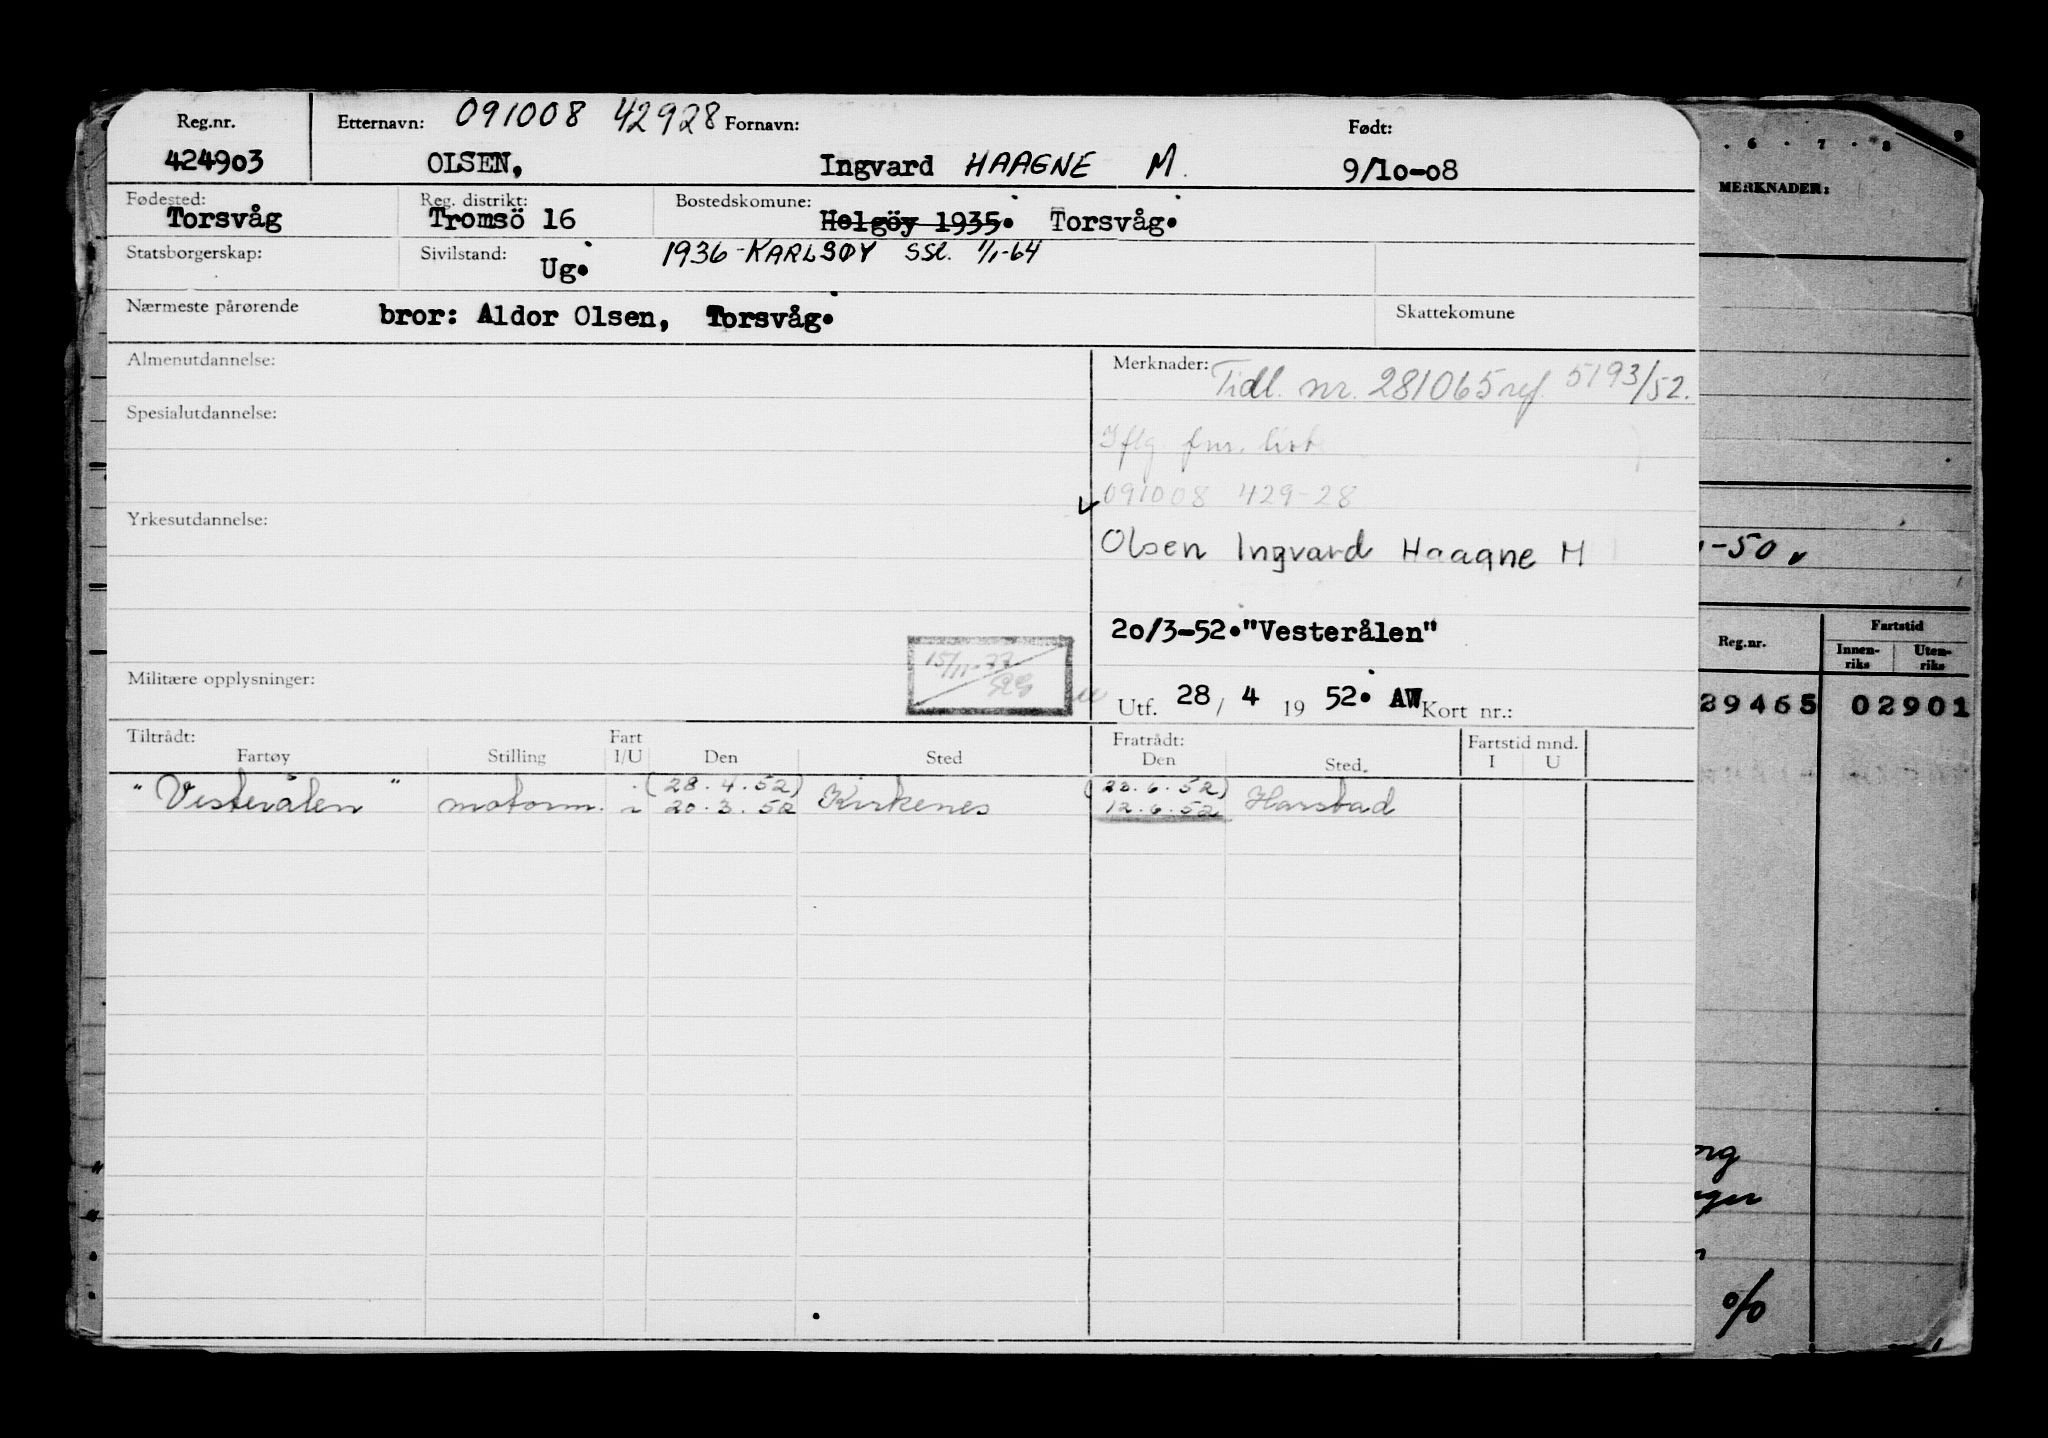 Reg.nr. Etternavn: 091008 42928 Fornavn: Født:
424903 OLSEN, Ingvard HAAGNE M. 9/10-08
Fødested: Reg. distrikt: Bostedskomune:
Torsvåg Tromsö 16 Helgöy 1935. Torsvåg.
Statsborgerskap: Sivilstand: Ug. 1936-KARLSØY SSL. 1/1-64
Nærmeste pårørende bror: Aldor Olsen, Torsvåg. Skattekomune
Almenutdannelse: Merknader: Tidl. nr. 281065 ref. 5193/52.
Spesialutdannelse:
Iflg. fnr. list
091008 429-28
Yrkesutdannelse:
Olsen Ingvard Haagne M
20/3-52."Vesterålen"
15/11-77
Militære opplysninger:
Utf. 28/4 1952. AW Kort nr.:
Tiltrådt: Fart Fratrådt: Fartstid mnd.
Fartøy Stilling I/U Den Sted Den Sted. I U
"Vesterålen" motorm. i (28.4.52) 20.3.52 Kirkenes (23.6.52) 12.6.52 Harstad
. 6 . 7 . 8 9
MERKNADER:
-50
Reg.nr. Fartstid
Innen-riks Uten-riks
39465 02901
org
ager
%